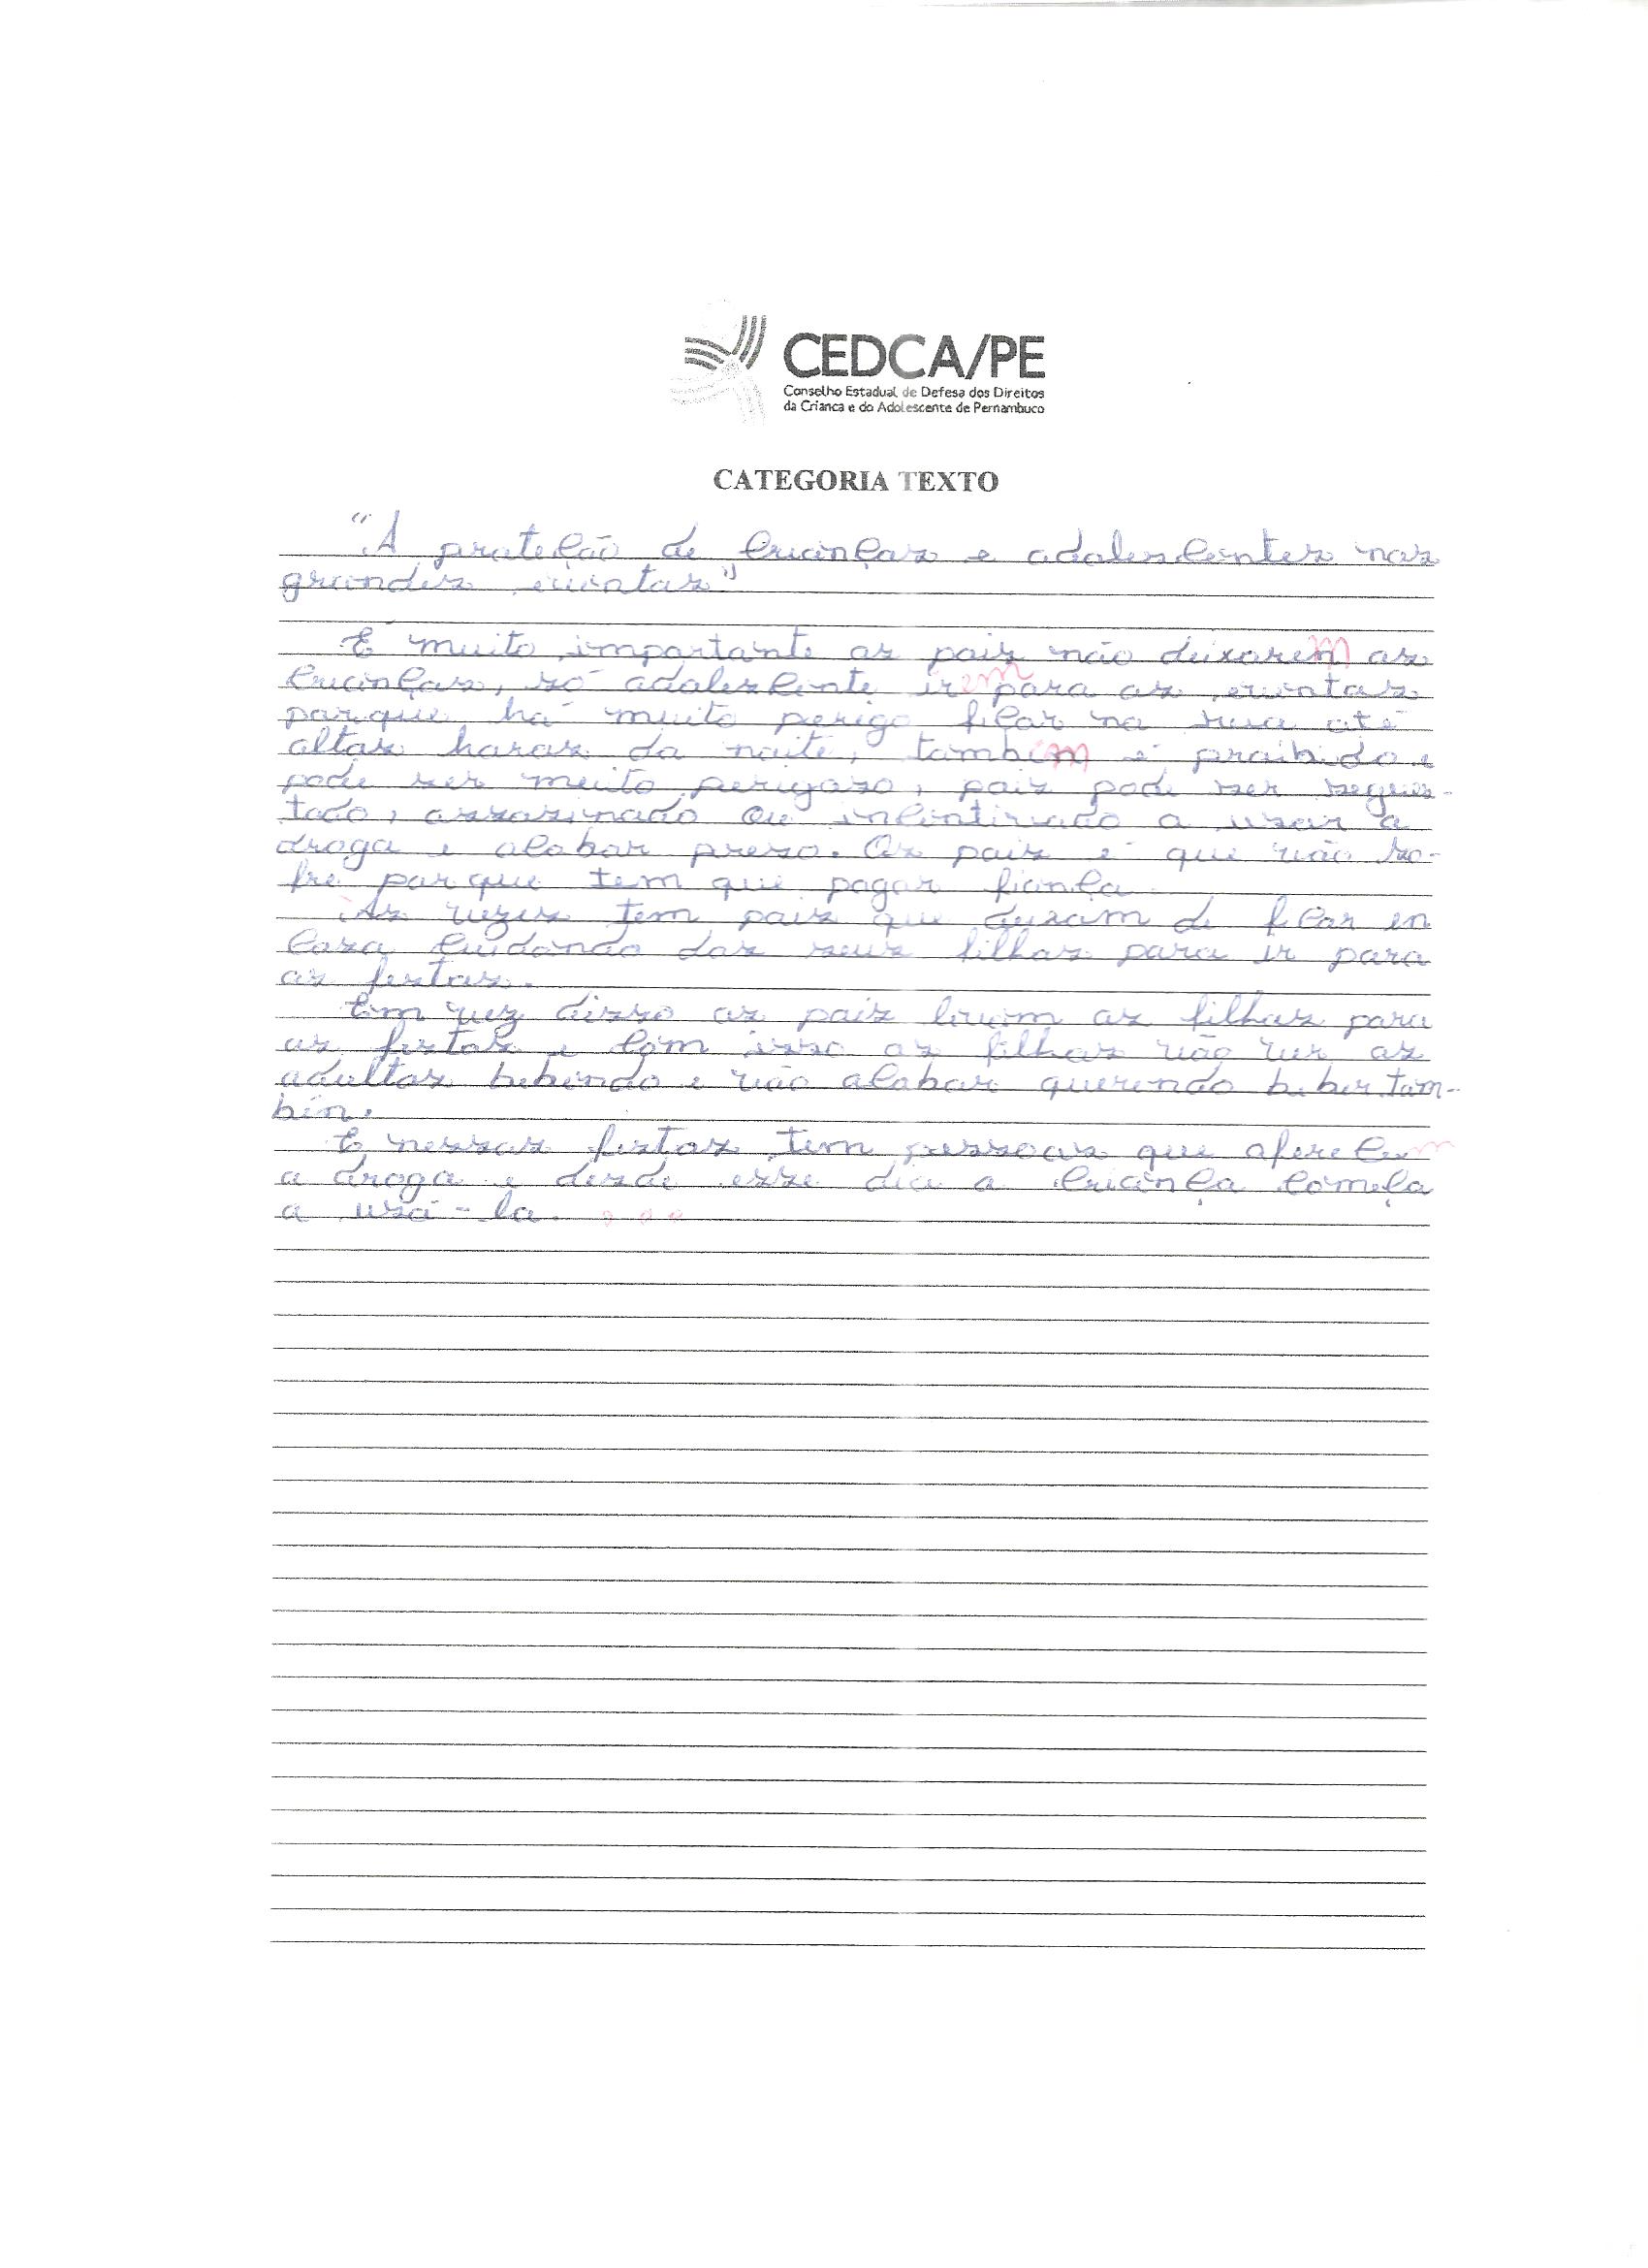 CEDCA/PE
Conselho Estadual de Defesa dos Direitos
da Criança e do Adolescente de Pernambuco
CATEGORIA TEXTO
"A proteção de crianças e adolescentes nos
grandes eventos"
É muito importante os pais não deixarem as
crianças, só adolescente irem para os eventos
porque há muito perigo ficar na rua até
altas horas da noite, também é proibido e
pode ser muito perigoso, pois pode ser seques-
tado, assasinado ou incentivado a usar a
droga e acabar preso. Os pais é que vão so-
fre porque tem que pagar fiança.
Às vezes tem pais que deixam de ficar en
casa cuidando dos seus filhos para ir para
as festas.
Em vez disso os pais levem os filhos para
as festas e com isso os filhos vão ver os
adultos bebendo e vão acabar querendo beber tam-
bén.
E nessas festas tem pessoas que oferecem
a droga e desde esse dia a criança começa
a usá-la. ...